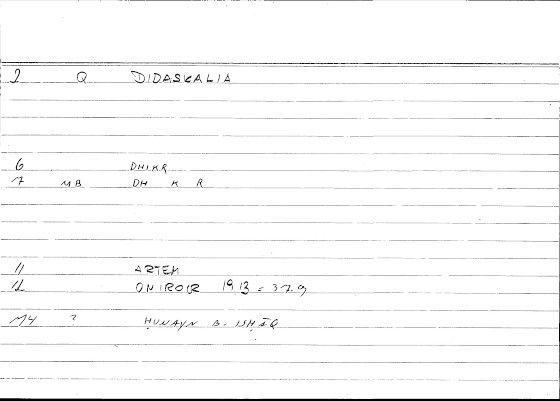 2 Q DIDASKALIA
6 DHIKR
7 MB DH K R
11 ARTEM
12 ONIROKR 1913 = 379
M4 ? ḤUNAYN B. ISḤĀQ